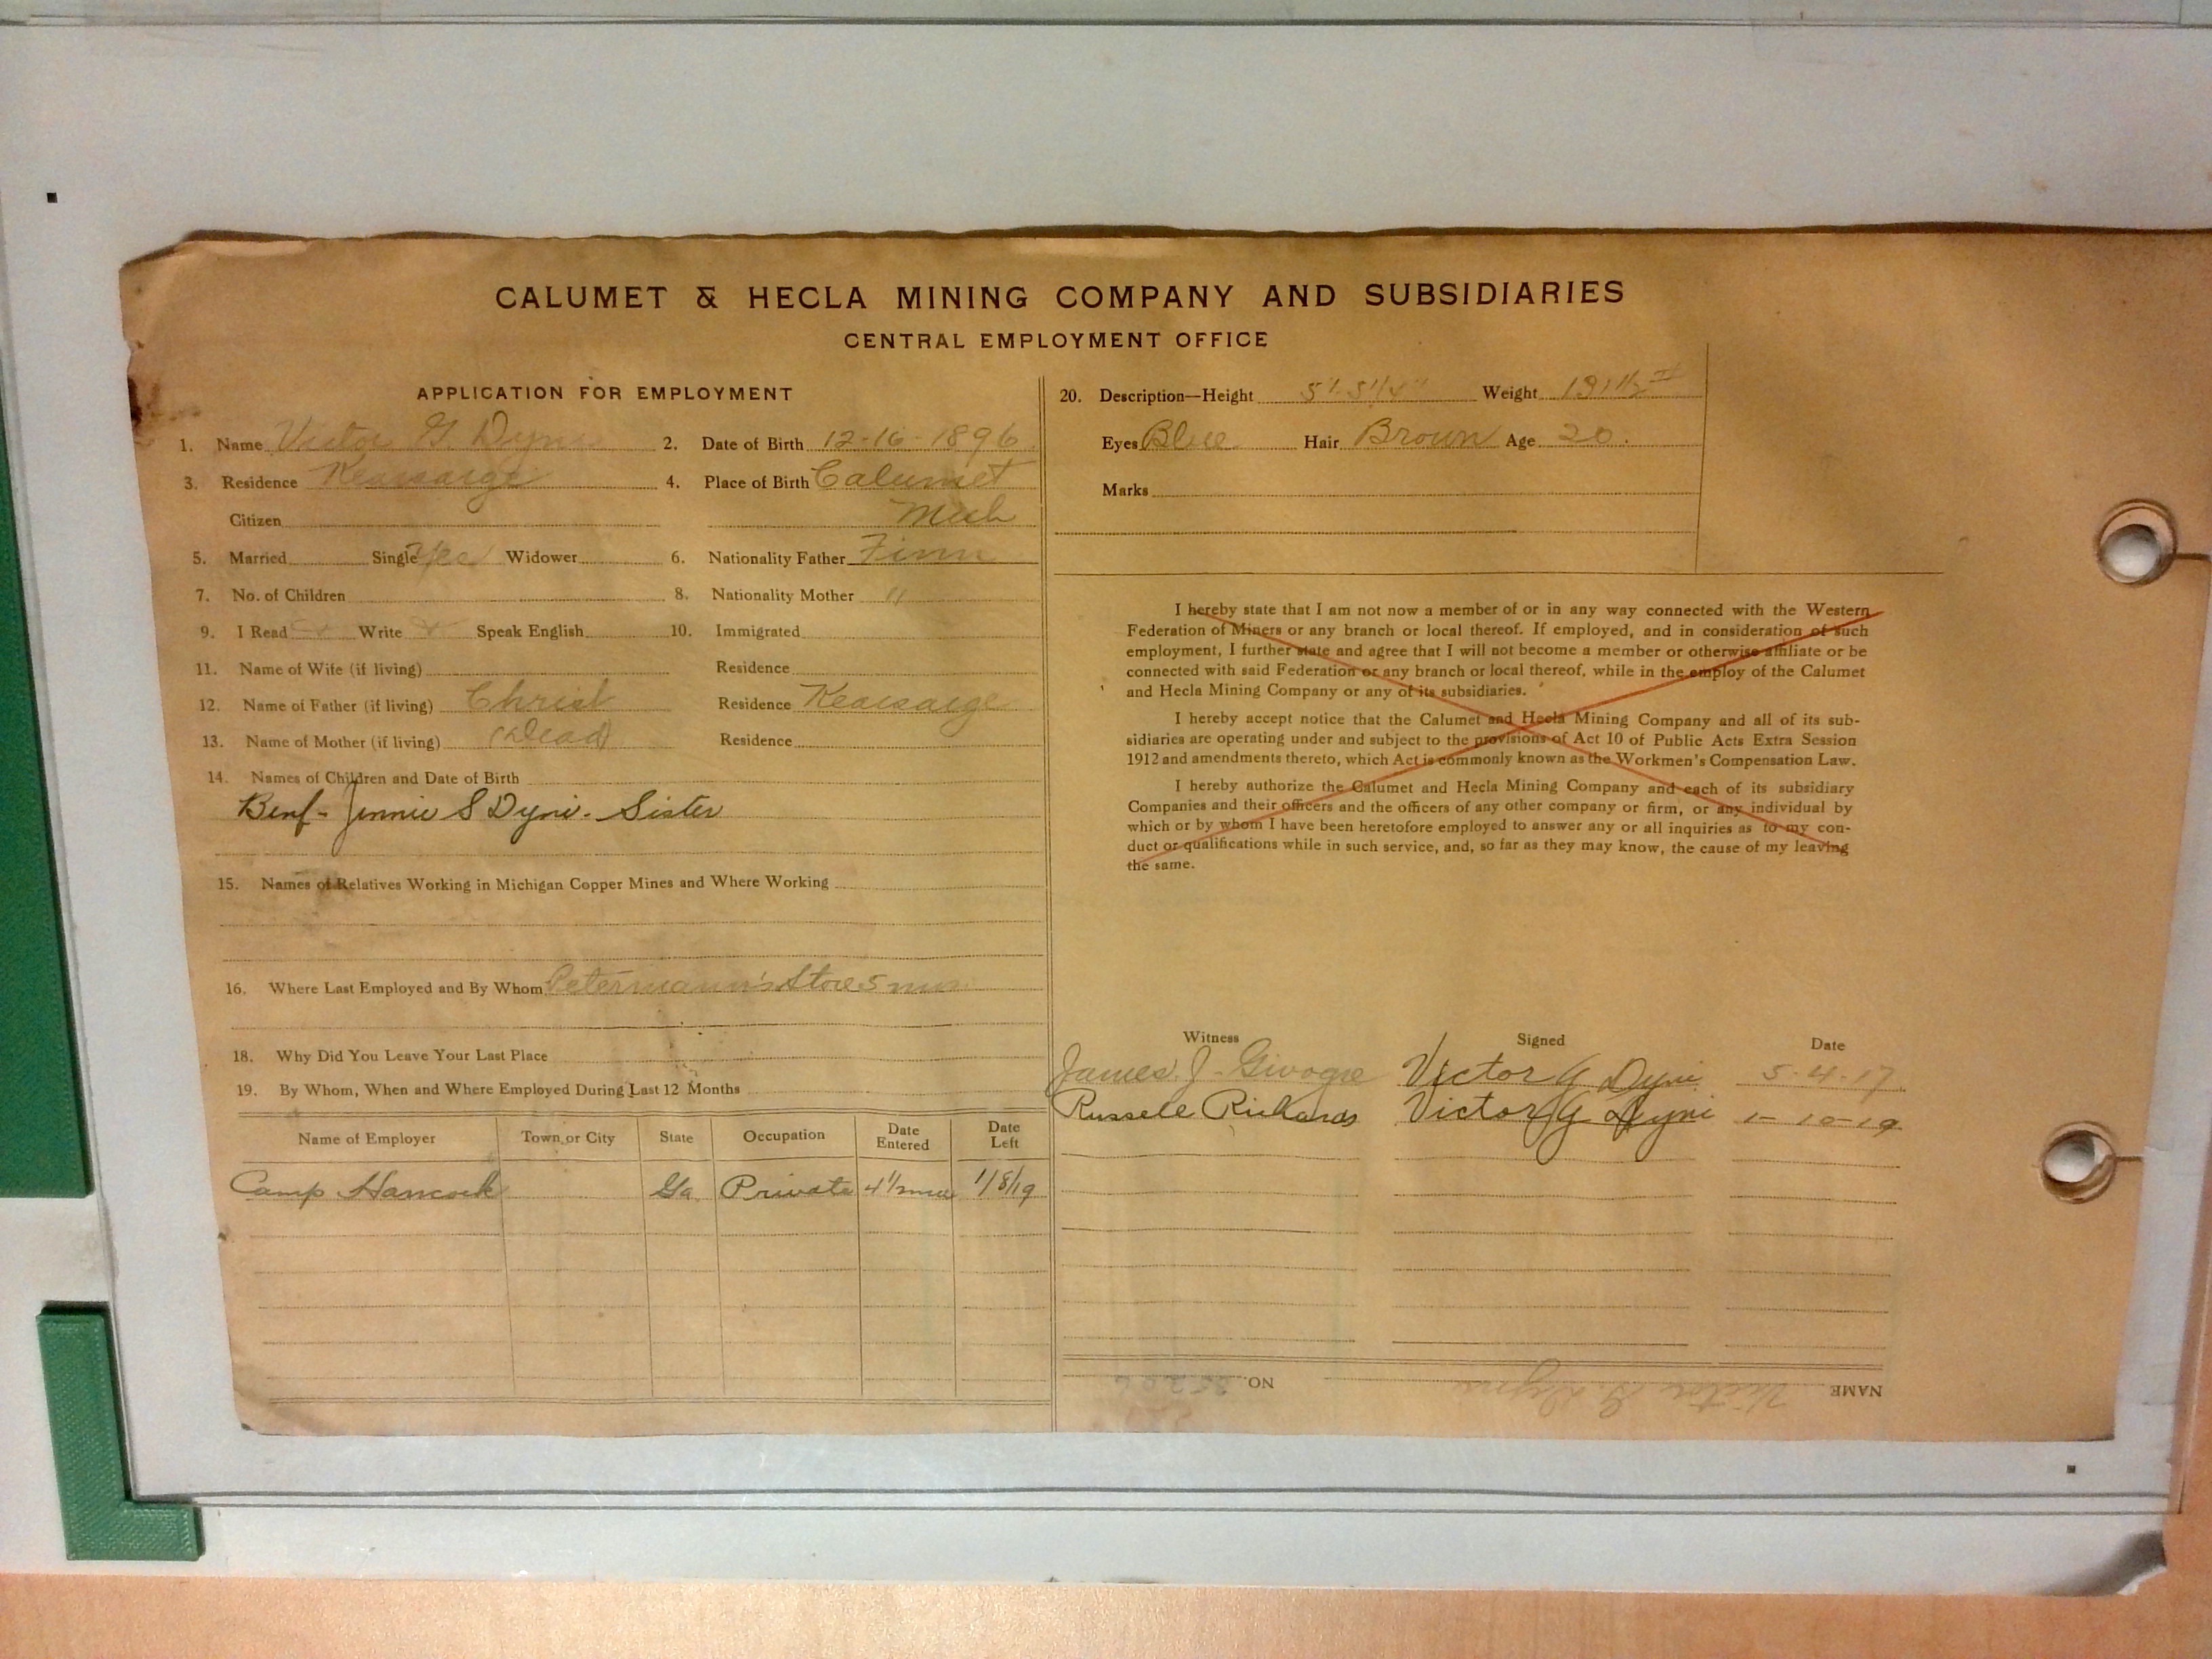 CALUMET & HECLA MINING COMPANY AND SUBSIDIARIES
CENTRAL EMPLOYMENT OFFICE
APPLICATION FOR EMPLOYMENT
1. Name Victor G. Dyni 2. Date of Birth 12-16-1896
3. Residence Kearsarge 4. Place of Birth Calumet
Citizen Mich
5. Married Single Yes Widower 6. Nationality Father Finn
7. No. of Children 8. Nationality Mother "
9. I Read Write Speak English 10. Immigrated
11. Name of Wife (if living) Residence
12. Name of Father (if living) Christ Residence Kearsarge
13. Name of Mother (if living) (Dead) Residence
14. Names of Children and Date of Birth
Benf- Jennie S Dyni - Sister
15. Names of Relatives Working in Michigan Copper Mines and Where Working
16. Where Last Employed and By Whom Petermann's Store 5 mos.
18. Why Did You Leave Your Last Place
19. By Whom, When and Where Employed During Last 12 Months
Name of Employer Town or City State Occupation Date Entered Date Left
Camp Hancock Ga. Private 4 1/2 mos 1/8/19
20. Description—Height Weight
Eyes Blue Hair Brown Age 20.
Marks
I hereby state that I am not now a member of or in any way connected with the Western
Federation of Miners or any branch or local thereof. If employed, and in consideration of such
employment, I further state and agree that I will not become a member or otherwise affiliate or be
connected with said Federation or any branch or local thereof, while in the employ of the Calumet
and Hecla Mining Company or any of its subsidiaries.
I hereby accept notice that the Calumet and Hecla Mining Company and all of its sub-
sidiaries are operating under and subject to the provisions of Act 10 of Public Acts Extra Session
1912 and amendments thereto, which Act is commonly known as the Workmen's Compensation Law.
I hereby authorize the Calumet and Hecla Mining Company and each of its subsidiary
Companies and their officers and the officers of any other company or firm, or any individual by
which or by whom I have been heretofore employed to answer any or all inquiries as to my con-
duct or qualifications while in such service, and, so far as they may know, the cause of my leaving
the same.
Witness Signed Date
James J. Victor G Dyni 5-4-17
Russell Richards Victor G Dyni 1-10-19
NAME Victor G. Dyni NO.